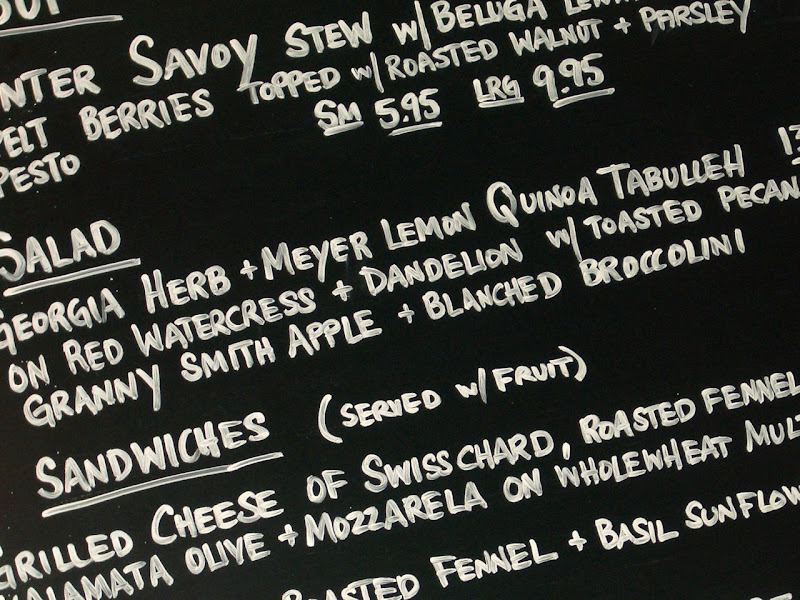 NTER SAVOY STEW W/ BELUGA
PELT BERRIES TOPPED W/ ROASTED WALNUT + PARSLEY
PESTO SM 5.95 LRG 9.95
SALAD
GEORGIA HERB + MEYER LEMON QUINOA TABULLEH 13
ON RED WATERCRESS + DANDELION W/ TOASTED PECAN
GRANNY SMITH APPLE + BLANCHED BROCCOLINI
SANDWICHES (SERVED W/ FRUIT)
GRILLED CHEESE OF SWISS CHARD, ROASTED FENNEL
KALAMATA OLIVE + MOZZARELA ON WHOLEWHEAT MULT
ROASTED FENNEL + BASIL SUNFLOW